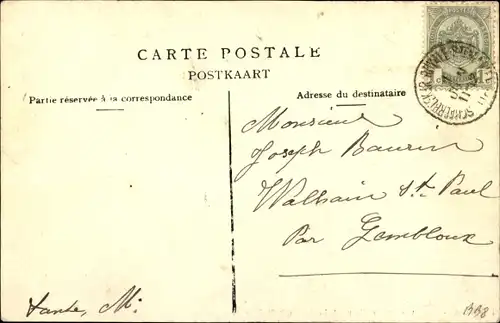 CARTE POSTALE
POSTKAART
Partie réservée à la correspondance
Adresse du destinataire
Monsieur
Joseph Baurin
Walhain St. Paul
Par Gembloux
tante, M: